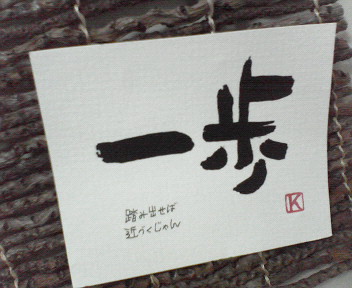 一歩
踏み出せば
近づくじゃん
K